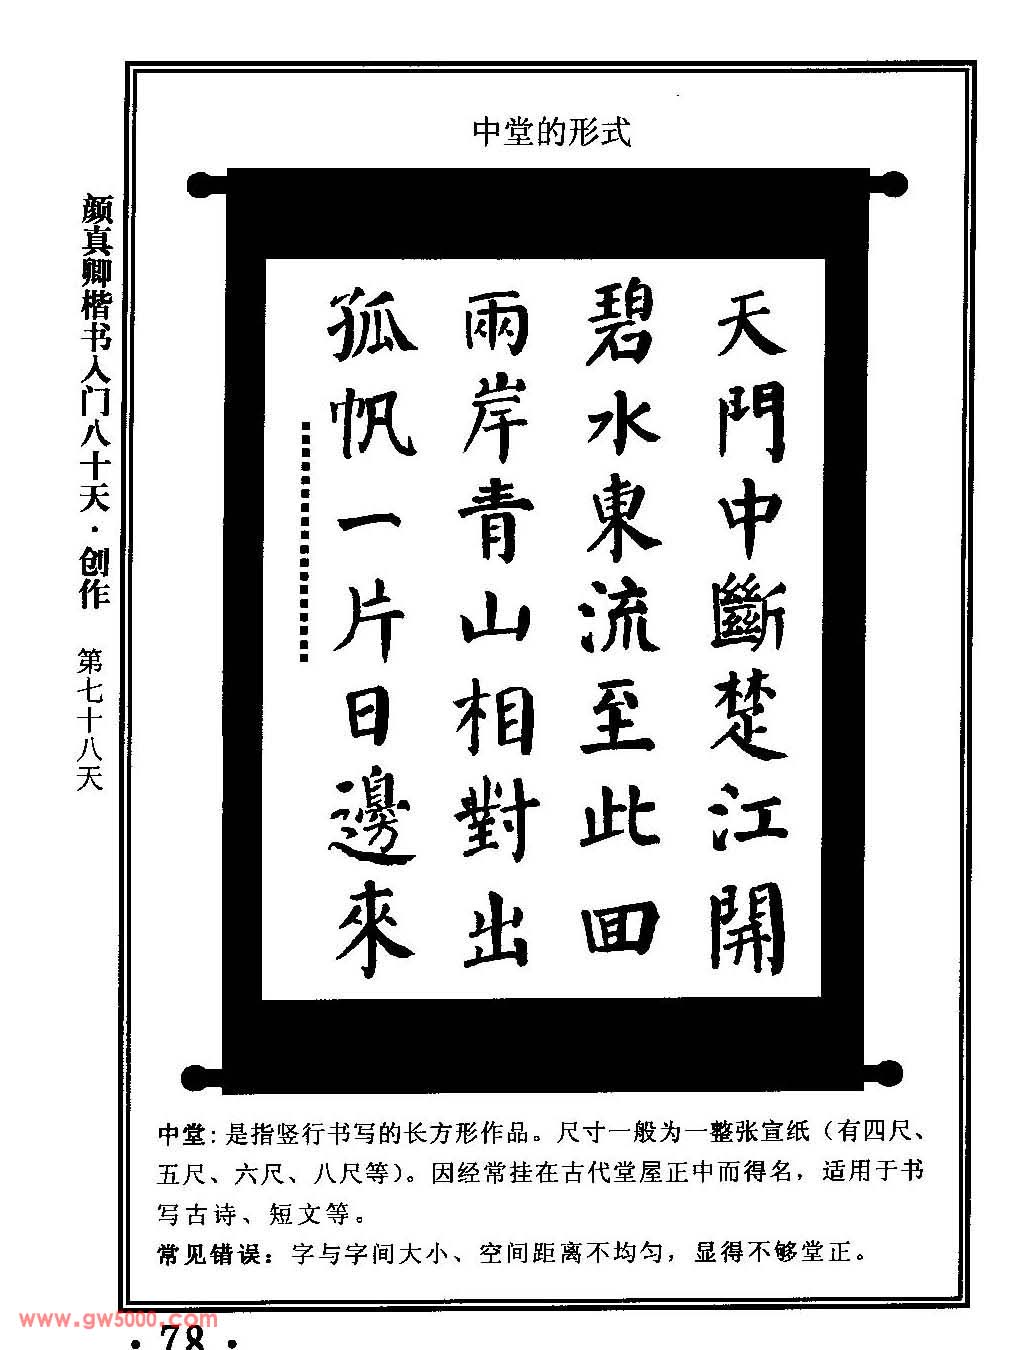 中堂的形式
颜真卿楷书入门八十天·创作 第七十八天
天門中斷楚江開
碧水東流至此回
兩岸青山相對出
孤帆一片日邊來
中堂：是指竖行书写的长方形作品。尺寸一般为一整张宣纸（有四尺、
五尺、六尺、八尺等）。因经常挂在古代堂屋正中而得名，适用于书
写古诗、短文等。
常见错误：字与字间大小、空间距离不均匀，显得不够堂正。
www.gw5000.com
·78·